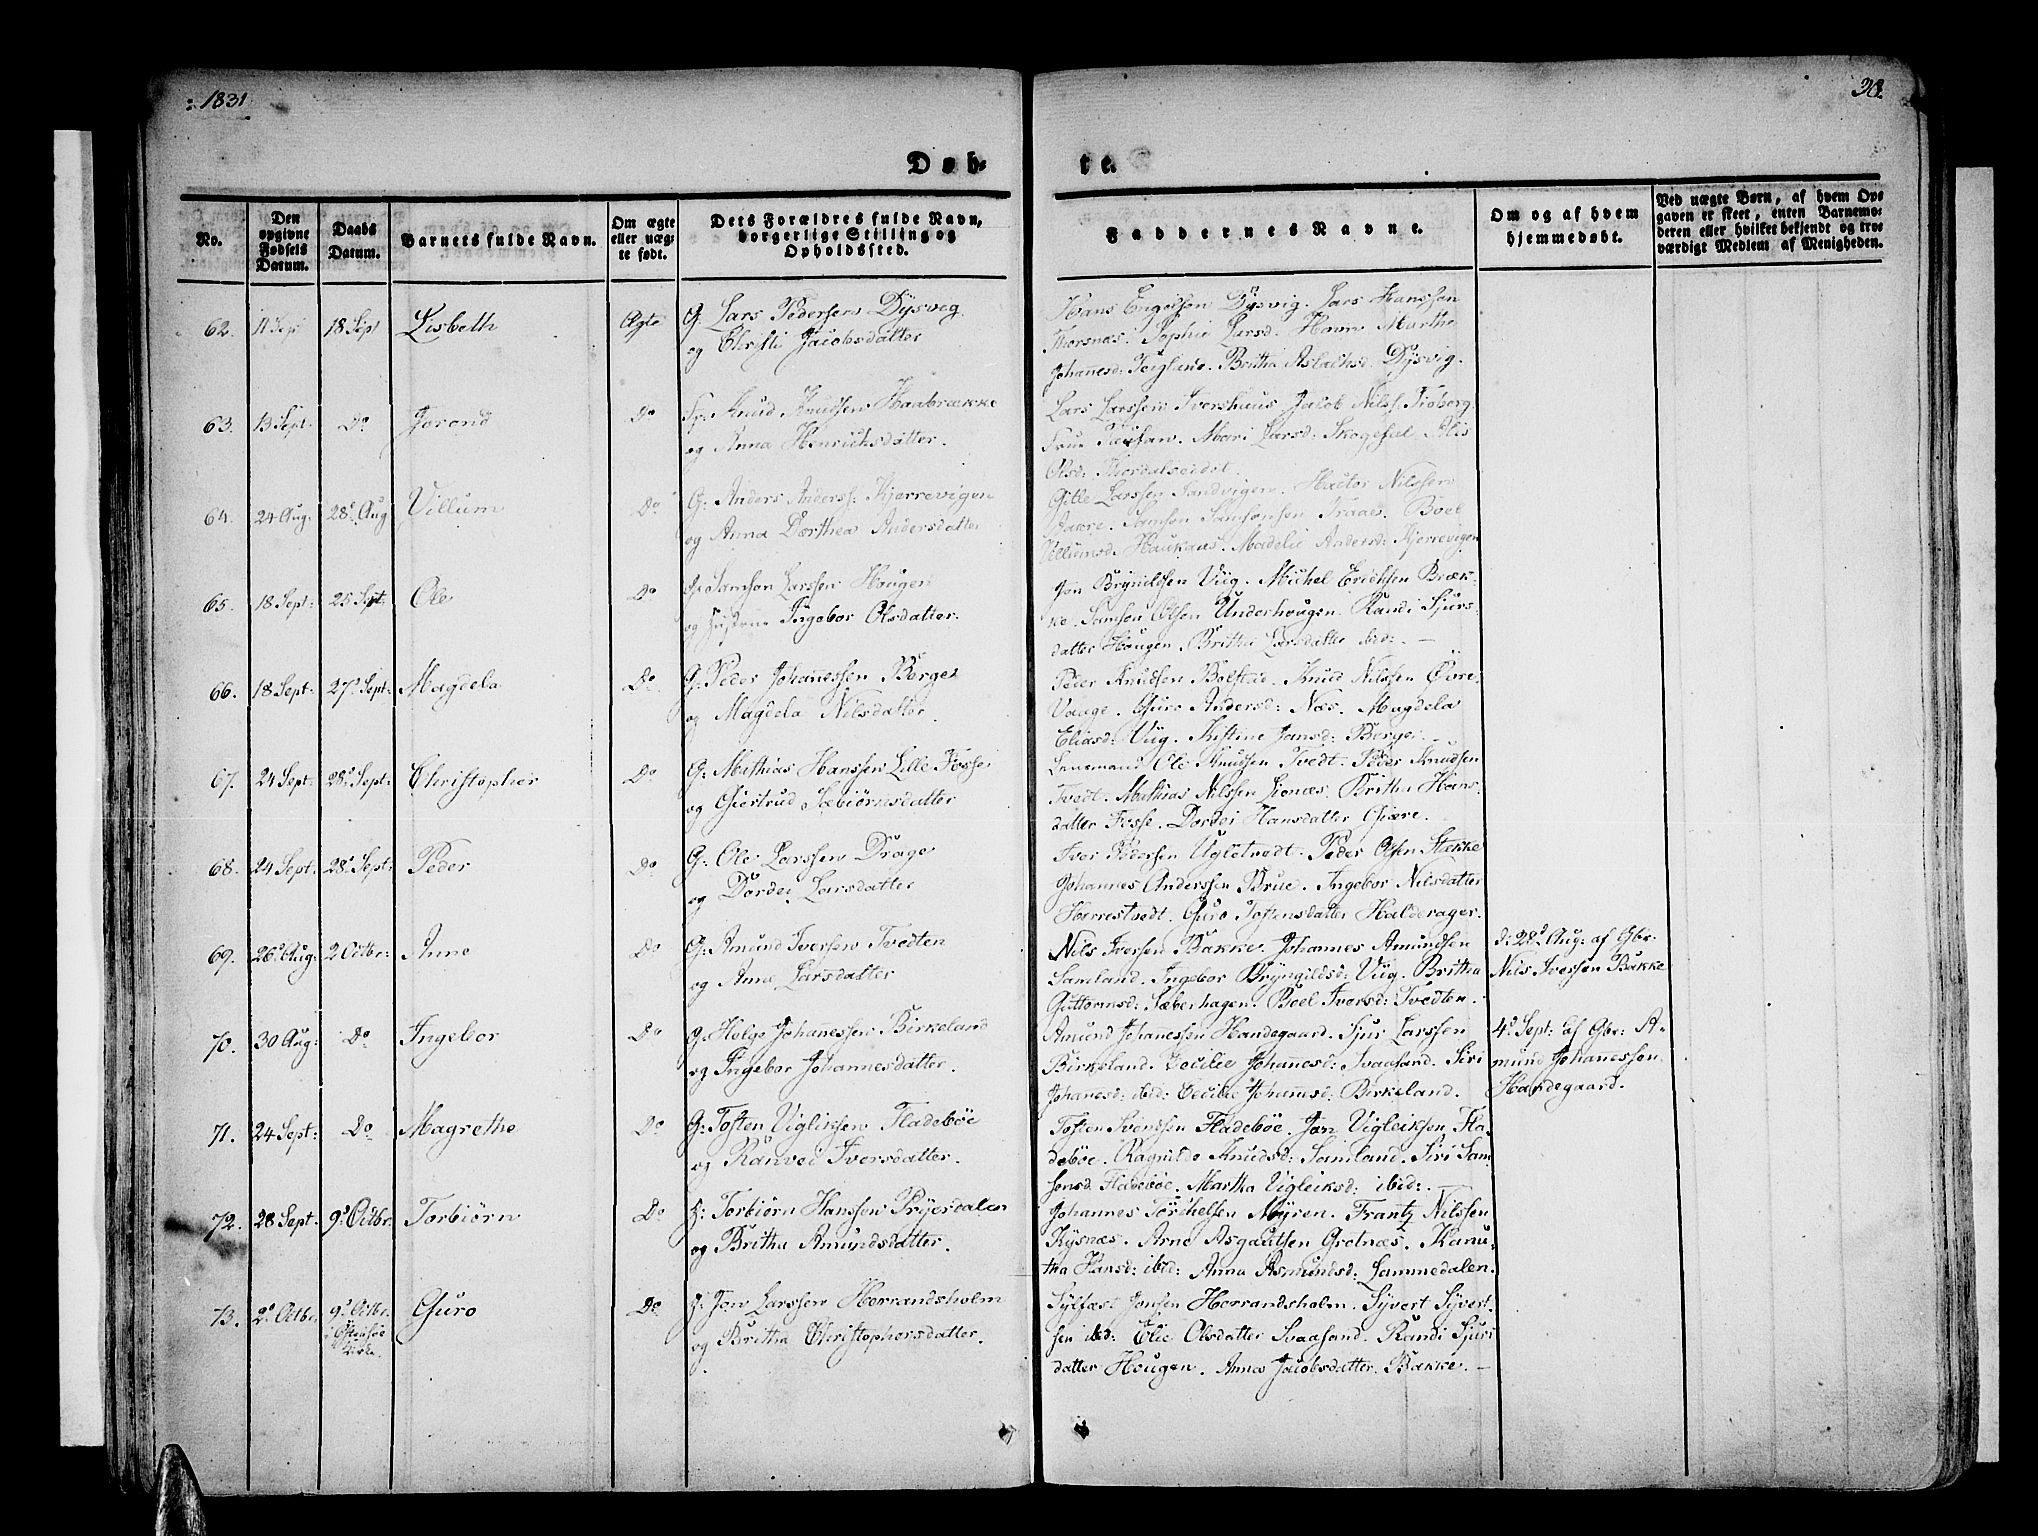 1831
38.
Døb-
te.
No.
Den
opgivne
Fødsels
Datum.
Daabs
Datum.
Barnets fulde Navn.
Om ægte
eller uæg-
te født.
Dets Forældres fulde Navn,
borgerlige Stilling og
Opholdssted.
Faddernes Navne.
Om og af hvem
hjemmedøbt.
Ved uægte Børn, af hvem Op-
gaven er skeet, enten Barnemo-
deren eller hvilket bekjendt og tro-
værdigt Medlem af Menigheden.
62. 11 Sept 18 Sept Lisbeth Ægte G. Lars Pedersen Dysveg
og Christi Jacobsdatter
Hans Engelsen Dysvig. Lars Hanssen
Thorsnæs. Sophie Larsd. Marthe
Johannesd: Teigland. Britha Aslachsd. Dysvig.
63. 13 Sept: Do Jorond Do Knud Knudsen Haabrække
og Anna Henrichsdatter.
Lars Larssen Ivershuus Jacob Nilss.
Mari Larsd: Alis
Olsd.
64. 24 Aug: 28d Aug Villum Do G: Anders Anderss: Kjerrevigen
og Anna Dorthea Andersdatter
Gitle Larssen Sandvigen. Hactor Nilssen
Aakre. Samson Samsonsen Traae. Boel
Villumsd. Haukaas. Madelie Andersd: Kjerrevigen
65. 18 Sept: 25 Sept. Ole Do Samson Larssen Hougen
og Hustrue Ingebor Olsdatter.
Jon Brynildsen Viig. Michel Erichsen Bræk-
ke. Samson Olsen Underhougen. Randi Sjurs-
datter Hougen. Britha Larsdatter ibid: —
66. 18 Sept: 27d Sept: Magdela Do G: Peder Johannessen Berge
og Magdela Nilsdatter.
Peder Knudsen Bolstad. Knud Nilssen Øvre
Vaage. Guro Andersd: Næs. Magdela
Eliasd: Viig. Kistine Jansd: Berge.
67. 24 Sept: 28d Sept: Christopher Do G: Mathias Hanssen Lille Fosse
og Giertrud Sæbiørnsdatter
Ole Knudsen Tvedt. Peder Knudsen
Tvedt. Mathias Nilssen Lionæs. Britha Hans-
datter Fosse. Dordei Hansdatter Giære.
68. 24 Sept. 28d Sept: Peder Do G: Ole Larssen Drage
og Dordei Larsdatter
Iver Pedersen Ugletvedt. Peder Olsen Stække
Johannes Anderssen Brue. Ingebor Nilsdatter
Herrestvedt. Guro Tostensdatter Halderager.
69. 26d Aug: 2 Octbr: Anne Do G: Amund Iversen Tvedten
og Anna Larsdatter
Nils Iversen Bakke. Johannes Amundsen
Samland. Ingebor Bryngildsd: Viig. Britha
Guttormsd: Sæberhagen. Boel Iversd: Tvedten.
d: 28d Aug: af Gbr:
Nils Iversen Bakke
70. 30 Aug: Do Ingebor Do G. Helge Johanessen Birkeland
og Ingebor Johannesdatter.
Amund Johanessen Handegaard. Sjur Larssen
Birkeland. Cecilie Johannesd: Svaasand. Siri
Johanesd: ibid: Cecilie Johannesd: Birkeland.
4d Sept: af Gbr: A-
mund Johanessen
Handegaard.
71. 24 Sept: Do Magrethe Do G: Tosten Vigliksen Fladebøe
og Ranvei Iversdatter.
Tosten Svendsen Fladebøe. Jan Vigleiksen Fla-
debøe. Ragnilde Knudsd: Samland. Siri Sam-
sonsd. Fladebøe. Martha Vigleiksd: ibid:
72. 28 Sept. 9d Octbr: Torbiørn Do H: Torbiørn Hanssen Pryjerdalen
og Britha Amundsdatter.
Johannes Torchelsen Myren. Frantz Nilssen
Kysnæs. Arne Asgautsen Grotnæs. Kanu-
tha Hansd: ibid: Anna Asmundsd: Lammedalen.
73. 2d Octbr. 9d Octbr. Guro Do H: Jon Larssen Herrandsholm
i Østensøe
Kirke.
og Britha Christophersdatter.
Sylfæst Jonsen Herrandsholm. Syvert Syvert-
sen ibid: Elie Olsdatter Svaasand. Randi Sjurs
datter Hougen. Anna Jacobsdatter Bakke. —